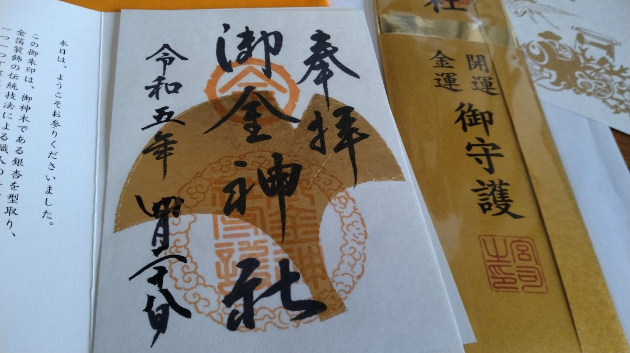 奉拝
御金神社
令和五年
四月二十八日
本日は、ようこそお参りくださいました。
この御朱印は、御神木である銀杏を型取り、
金箔装飾の伝統技法による職人の
社
開運
金運
御守護
宮司之印